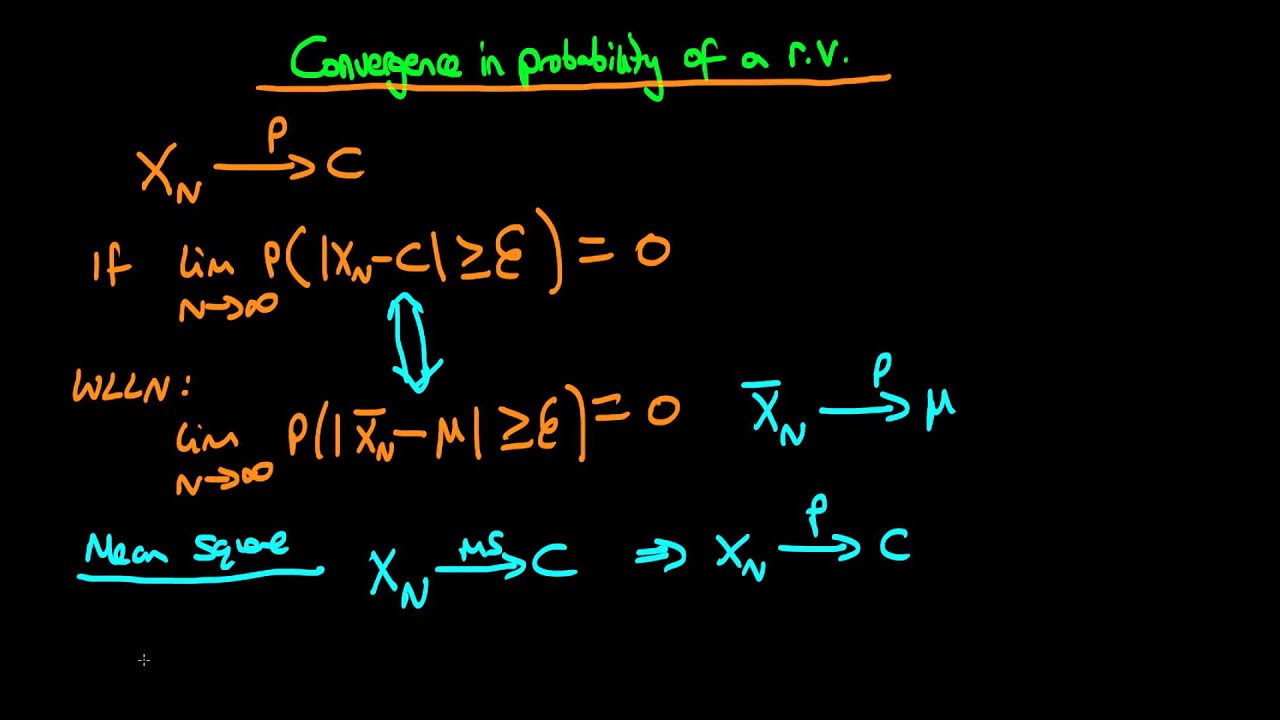 Convergence in probability of a r.v.
X_N →^P C
If lim_{N→∞} P(|X_N - C| ≥ ε) = 0
WLLN:
lim_{N→∞} P(|X̄_N - μ| ≥ ε) = 0 X̄_N →^P μ
Mean square X_N →^{MS} C ⇒ X_N →^P C